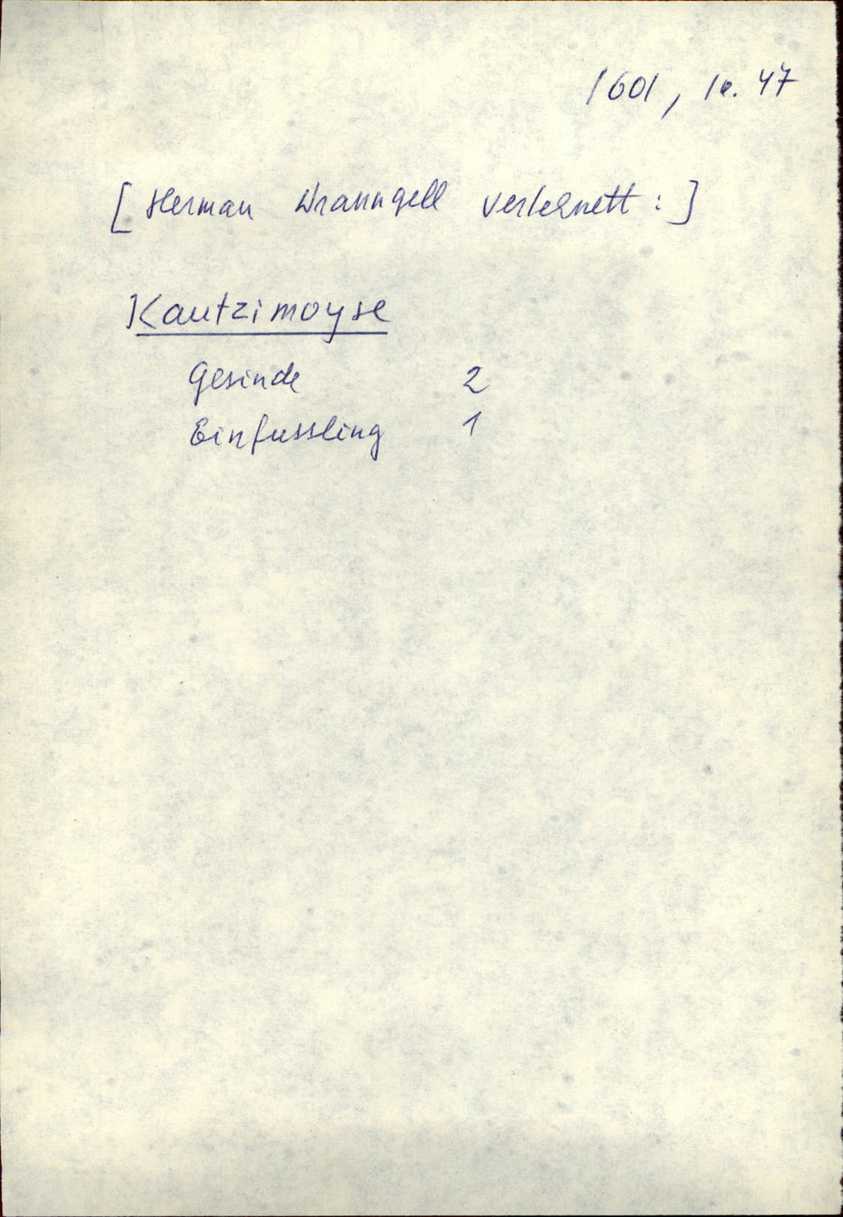 1601, lk. 47
[Herman Wranngell verlehnett:]
Kautzimoyse
Gesinde 2
Einfussling 1